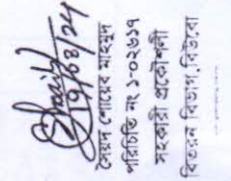 সৈয়দ শোয়েব মাহমুদ
পরিচিতি নং ১-০২৬১৭
সহকারী প্রকৌশলী
বিতরন বিভাগ, বিউবো